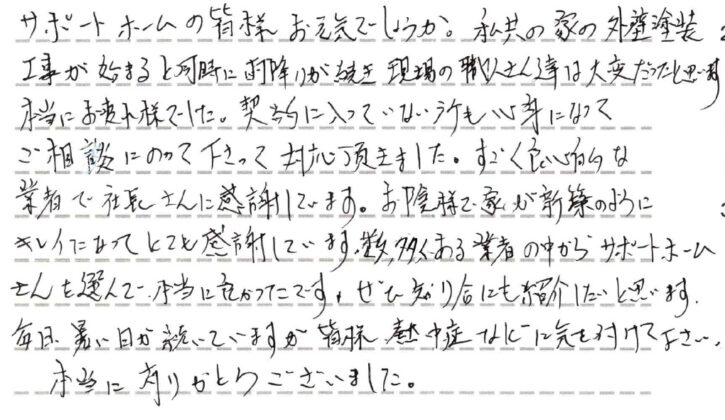 サポートホームの皆様 お元気でしょうか。私共の家の外壁塗装
工事が始まると同時に雨降りが続き 現場の職人さん達は大変だったと思います
本当にお疲れ様でした。契約に入っていない所も心身になって
ご相談にのって下さって 対応頂きました。すごく良心的な
業者で社長さんに感謝しています。お陰様で家が新築のように
キレイになってとても感謝しています。数多くある業者の中からサポートホーム
さんを選んで本当に良かったです。ぜひ知り合にも紹介したいと思います。
毎日暑い日が続いていますが皆様 熱中症などに気を付けて下さい。
本当に有りがとうございました。